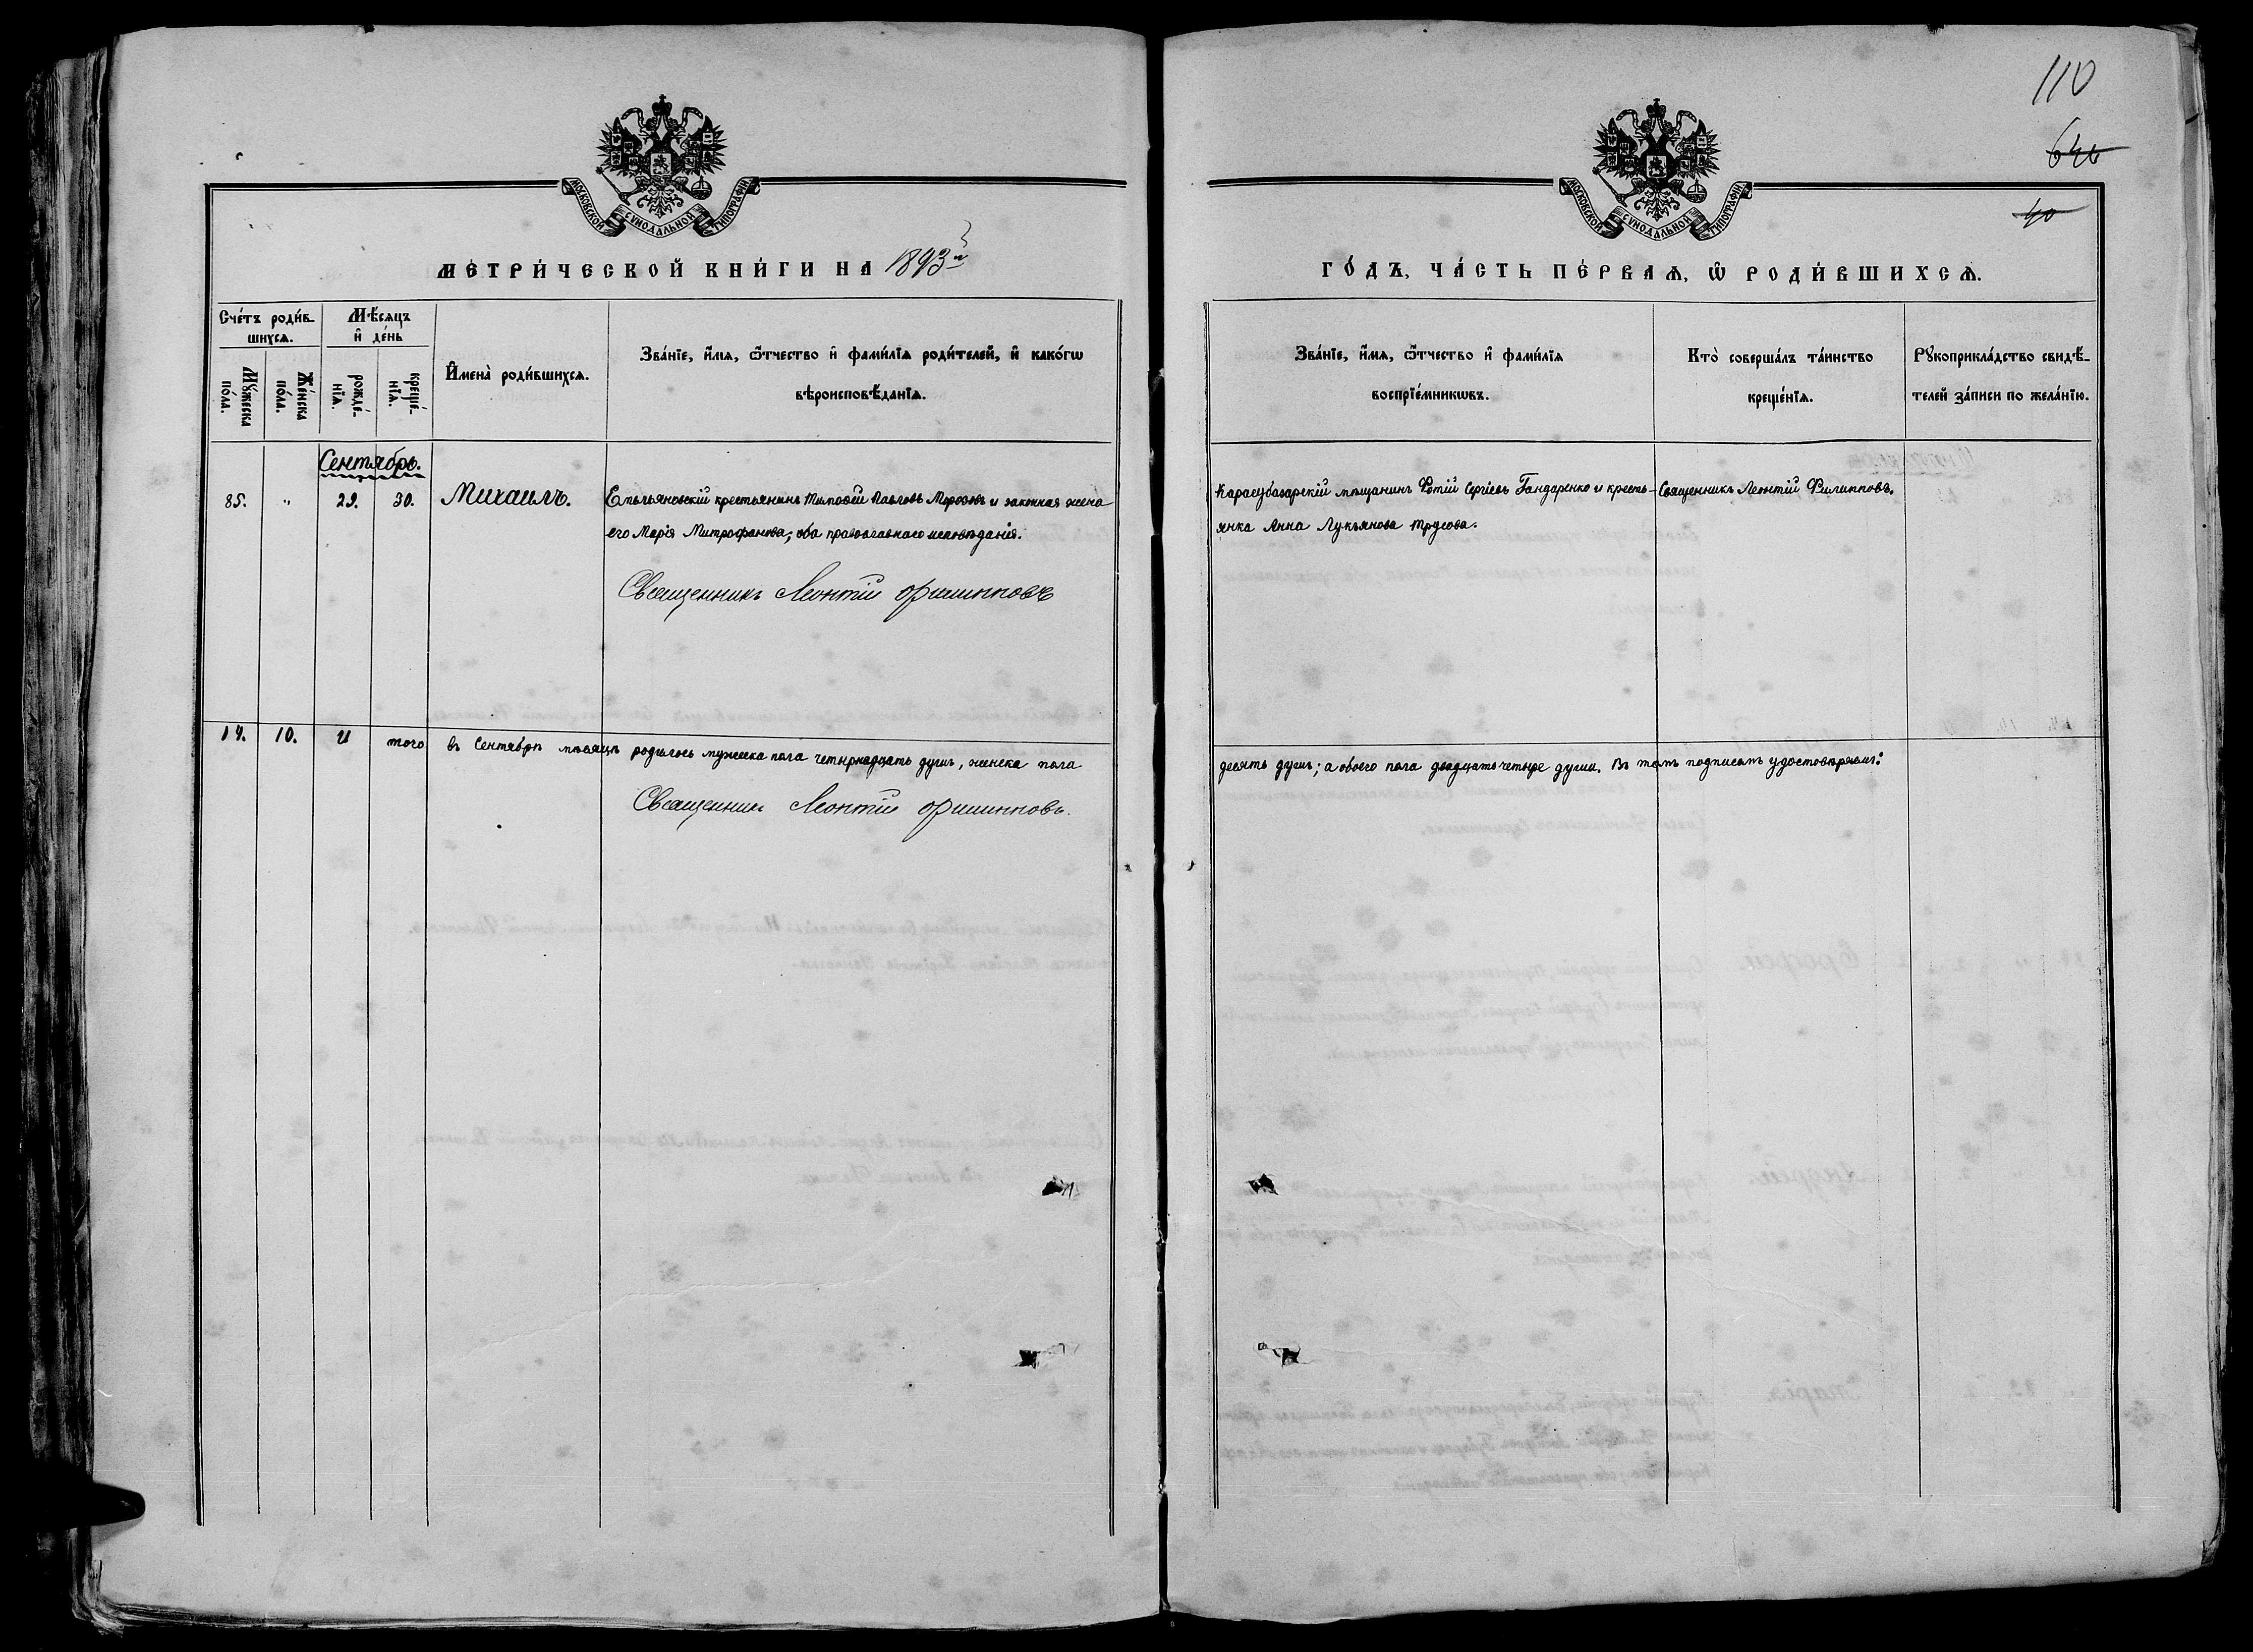 110
640
40
МОСКОВСКОЙ СѴНОДАЛЬНОЙ ТИПОГРАФІИ
МОСКОВСКОЙ СѴНОДАЛЬНОЙ ТИПОГРАФІИ
МЕТРИ́ЧЕСКОЙ КНИ́ГИ НА 1893й
ГО́ДЪ, ЧА́СТЬ ПЕ́РВАѦ, Ѽ РОДИ́ВШИХСѦ.
Сче́тъ роди́в-
шихсѧ.
Мꙋ́жеска по́ла.
Же́нска по́ла.
Мѣ́сѧцъ
и҆ де́нь
рожде́-нїѧ.
креще́-нїѧ.
И҆мена̀ роди́вшихсѧ.
Зва́нїе, и҆́мѧ, ѻ҆́тчество и҆ фами́лїѧ роди́телей, и҆ како́гѡ
вѣроисповѣ́данїѧ.
Зва́нїе, и҆́мѧ, ѻ҆́тчество и҆ фами́лїѧ
воспрїе́мникѡвъ.
Кто̀ соверша́лъ та́инство
креще́нїѧ.
Рꙋкоприкла́дство свидѣ́-
телей за́писи по жела́нїю.
Сентябрь.
85. " 29. 30. Михаилъ. Емельяновскій крестьянинъ Тимоѳей Павловъ Морозовъ и законная жена
его Марія Митрофанова; оба православнаго исповѣданія.
Священникъ Леонтій Филипповъ
Карасубазарскій мѣщанинъ Фотій Сергіевъ Гандаренко и кресть-
янка Анна Лукьянова Трусова.
Священникъ Леонтій Филипповъ.
14. 10. И того въ Сентябрѣ мѣсяцѣ родилось мужеска пола четырнадцать душъ, женска пола
десять душъ; а обоего пола двадцать четыре души. Въ томъ подписомъ удостовѣряемъ:
Священникъ Леонтій Филипповъ.